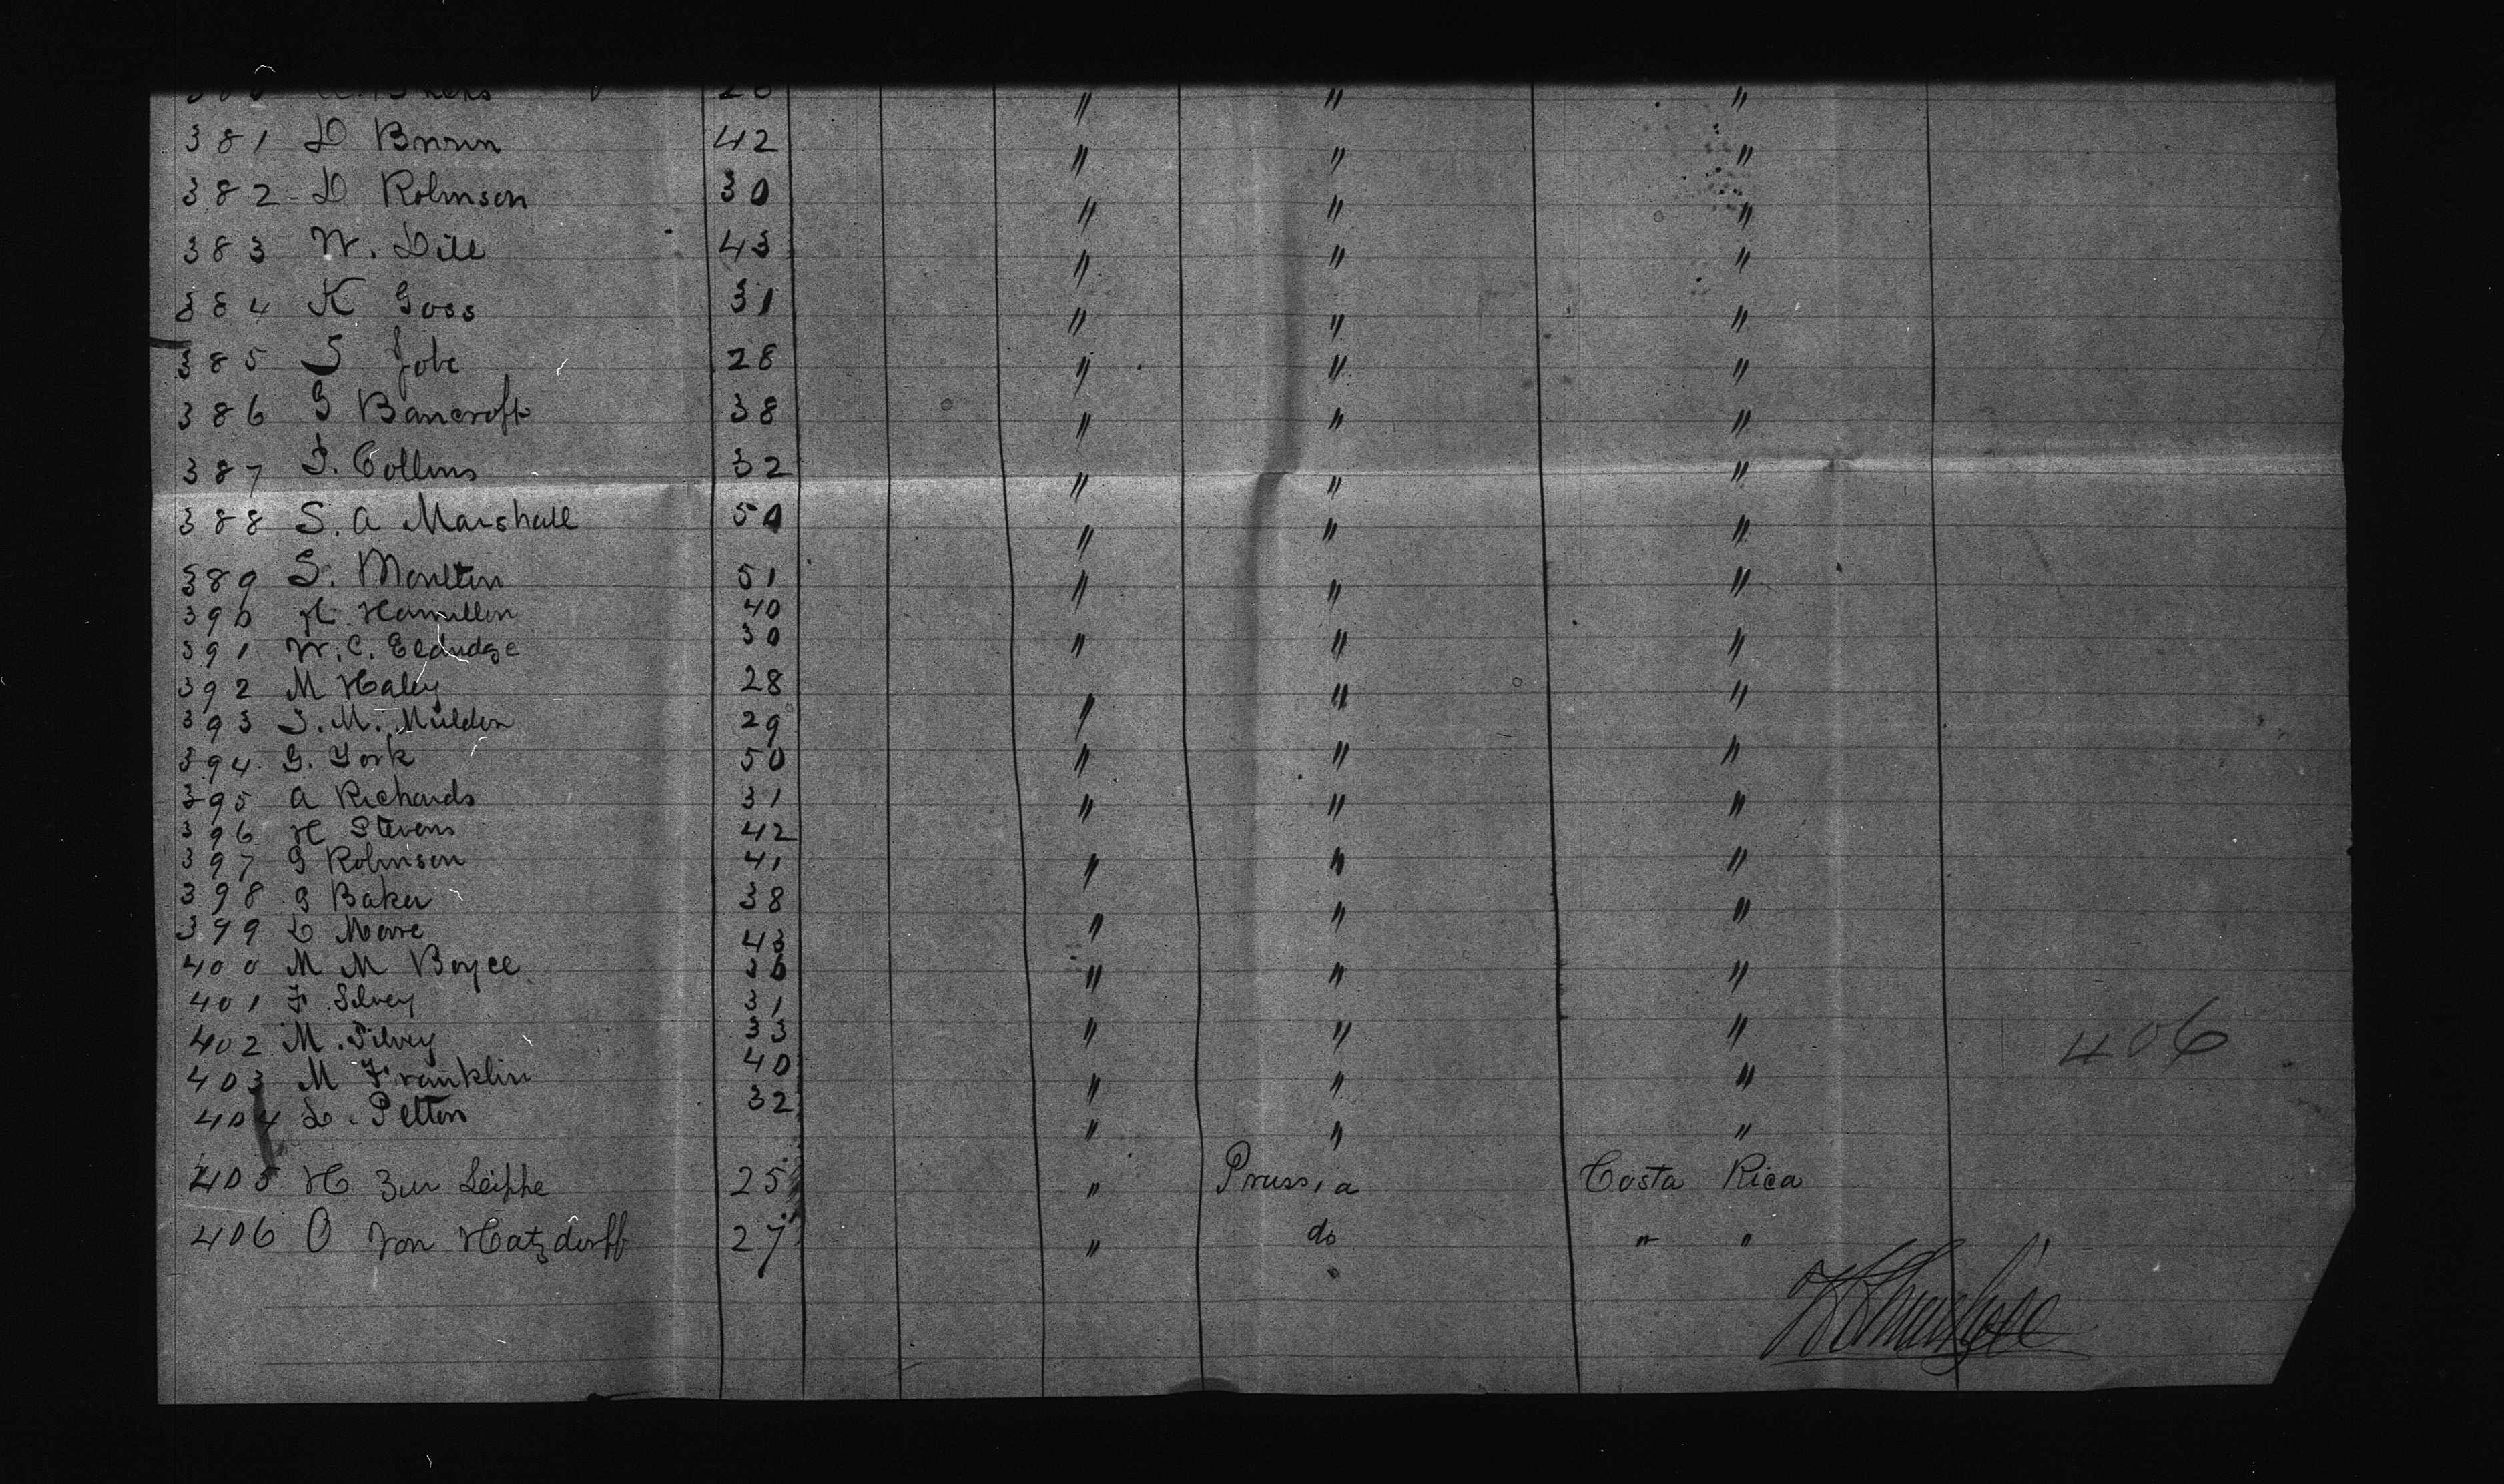 381 D Brown 42 " " "
382 D Robinson 30 " " "
383 W. Dill 43 " " "
384 K Goss 31 " " "
385 S Jobe 28 " " "
386 G Bancroft 38 " " "
387 T. Collins 32 " " "
388 S. A Marshall 50 " " "
389 S. Moulton 51 " " "
390 H. Hamilton 40
391 W. C. Eldridge 30 " " "
392 M Haley 28 " "
393 S. M. Mulden 29 "
394 G. York 50 " " "
395 A Richards 31 " " "
396 H Stevens 42
397 G Robinson 41 " " "
398 G Baker 38 " "
399 L Moore 43 "
400 M M Boyce " " "
401 F. Silvey 31
402 M. Silvey 33 " " "
406
403 M Franklin 40 " " "
404 L. Pelton 32 " " "
405 H Zur Leiphe 25 " Prussia Costa Rica
406 O Von Hatzdorff 27 " do " "